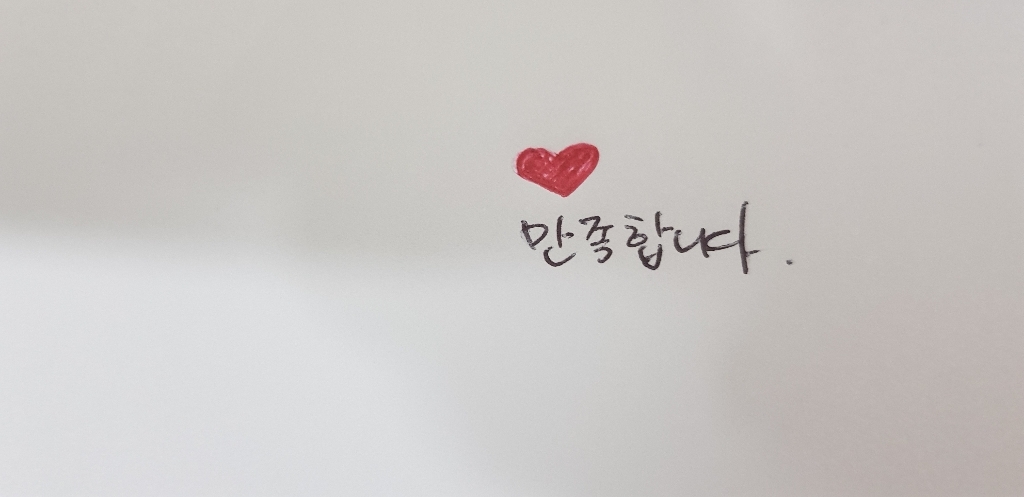 만족합니다.